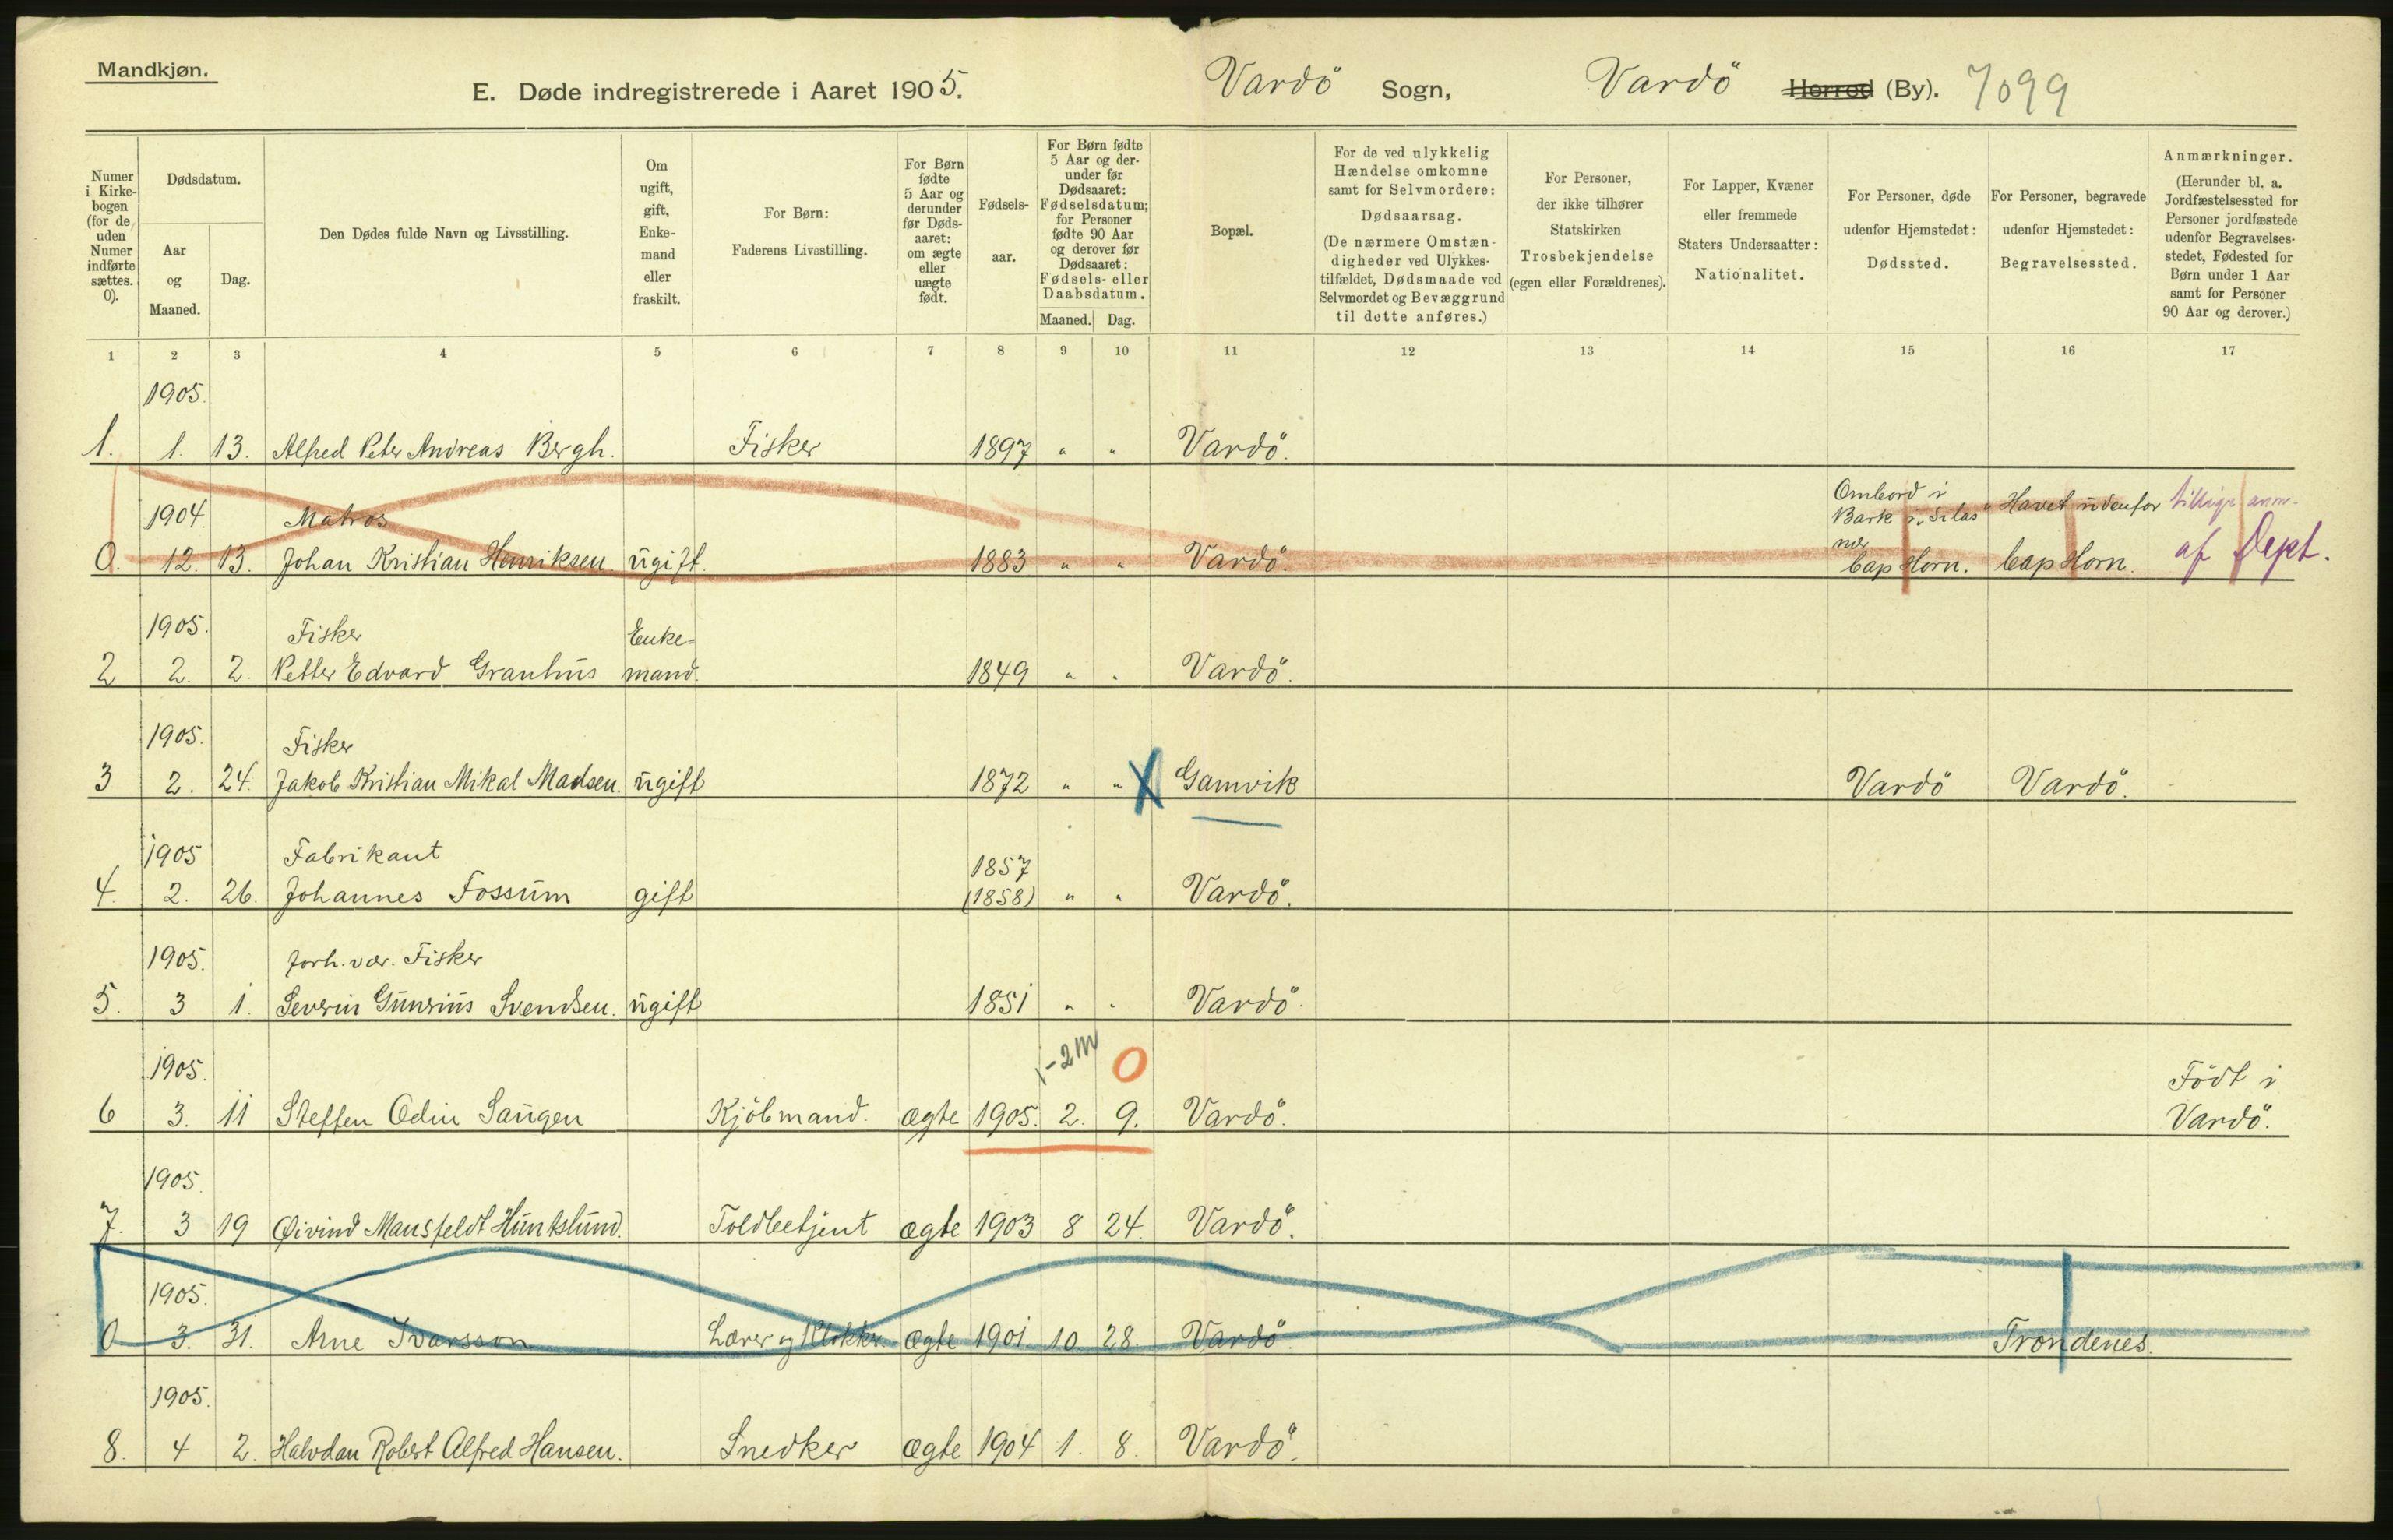 Mandkjøn.
E. Døde indregistrerede i Aaret 1905. Vardö Sogn, Vardö Herred (By). 7099
Numer i Kirkebogen (for de uden Numer indførte sættes. 0).
Dødsdatum.
Aar og Maaned.
Dag.
Den Dødes fulde Navn og Livsstilling.
Om ugift, gift, Enkemand eller fraskilt.
For Børn: Faderens Livsstilling.
For Børn fødte 5 Aar og derunder før Dødsaaret: om ægte eller uægte født.
Fødselsaar.
For Børn fødte 5 Aar og derunder før Dødsaaret: Fødselsdatum; for Personer fødte 90 Aar og derover før Dødsaaret: Fødsels- eller Daabsdatum.
Maaned. Dag.
Bopæl.
For de ved ulykkelig Hændelse omkomne samt for Selvmordere: Dødsaarsag. (De nærmere Omstændigheder ved Ulykkestilfældet, Dødsmaade ved Selvmordet og Bevæggrund til dette anføres.)
For Personer, der ikke tilhører Statskirken Trosbekjendelse (egen eller Forældrenes).
For Lapper, Kvæner eller fremmede Staters Undersaatter: Nationalitet.
For Personer, døde udenfor Hjemstedet: Dødssted.
For Personer, begravede udenfor Hjemstedet: Begravelsessted.
Anmærkninger. (Herunder bl. a. Jordfæstelsessted for Personer jordfæstede udenfor Begravelsesstedet, Fødested for Børn under 1 Aar samt for Personer 90 Aar og derover.)
1 2 3 4 5 6 7 8 9 10 11 12 13 14 15 16 17
1905.
1. 1. 13. Alfred Peter Andreas Bergh. Fisker 1897 " " Vardö.
1904. Matros Ombord i Bark "Silas" Havet udenfor
0. 12. 13. Johan Kristian Henriksen ugift. 1883 " " Vardö. nær Cap Horn. Cap Horn. af Dept.
1905. Fisker Enke=
2 2. 2. Petter Edvard Granhus mand. 1849 " " Vardö.
1905. Fisker
3 2. 24. Jakob Kristian Mikal Madsen. ugift 1872 " " X Gamvik Vardö Vardö.
1905 Fabrikant 1857
4. 2. 26. Johannes Fossum gift (1858) " " Vardö.
1905. forh. vær. Fisker
5. 3 1. Severin Gunerius Svendsen. ugift 1851 " " Vardö.
1905. 1-2 M 0 Födt i
6 3. 11 Steffen Odin Saugen Kjöbmand. ægte 1905. 2. 9. Vardö. Vardö.
1905.
7. 3 19 Øivind Mansfeldt Huntslund. Toldbetjent ægte 1903 8 24. Vardö.
1905.
0 3. 31. Arne Ivarsson Lærer og Klokker ægte 1901 10 28. Vardö. Trondenes.
1905.
8. 4 2. Halvdan Robert Alfred Hansen. Snedker ægte 1904 1. 8. Vardö.